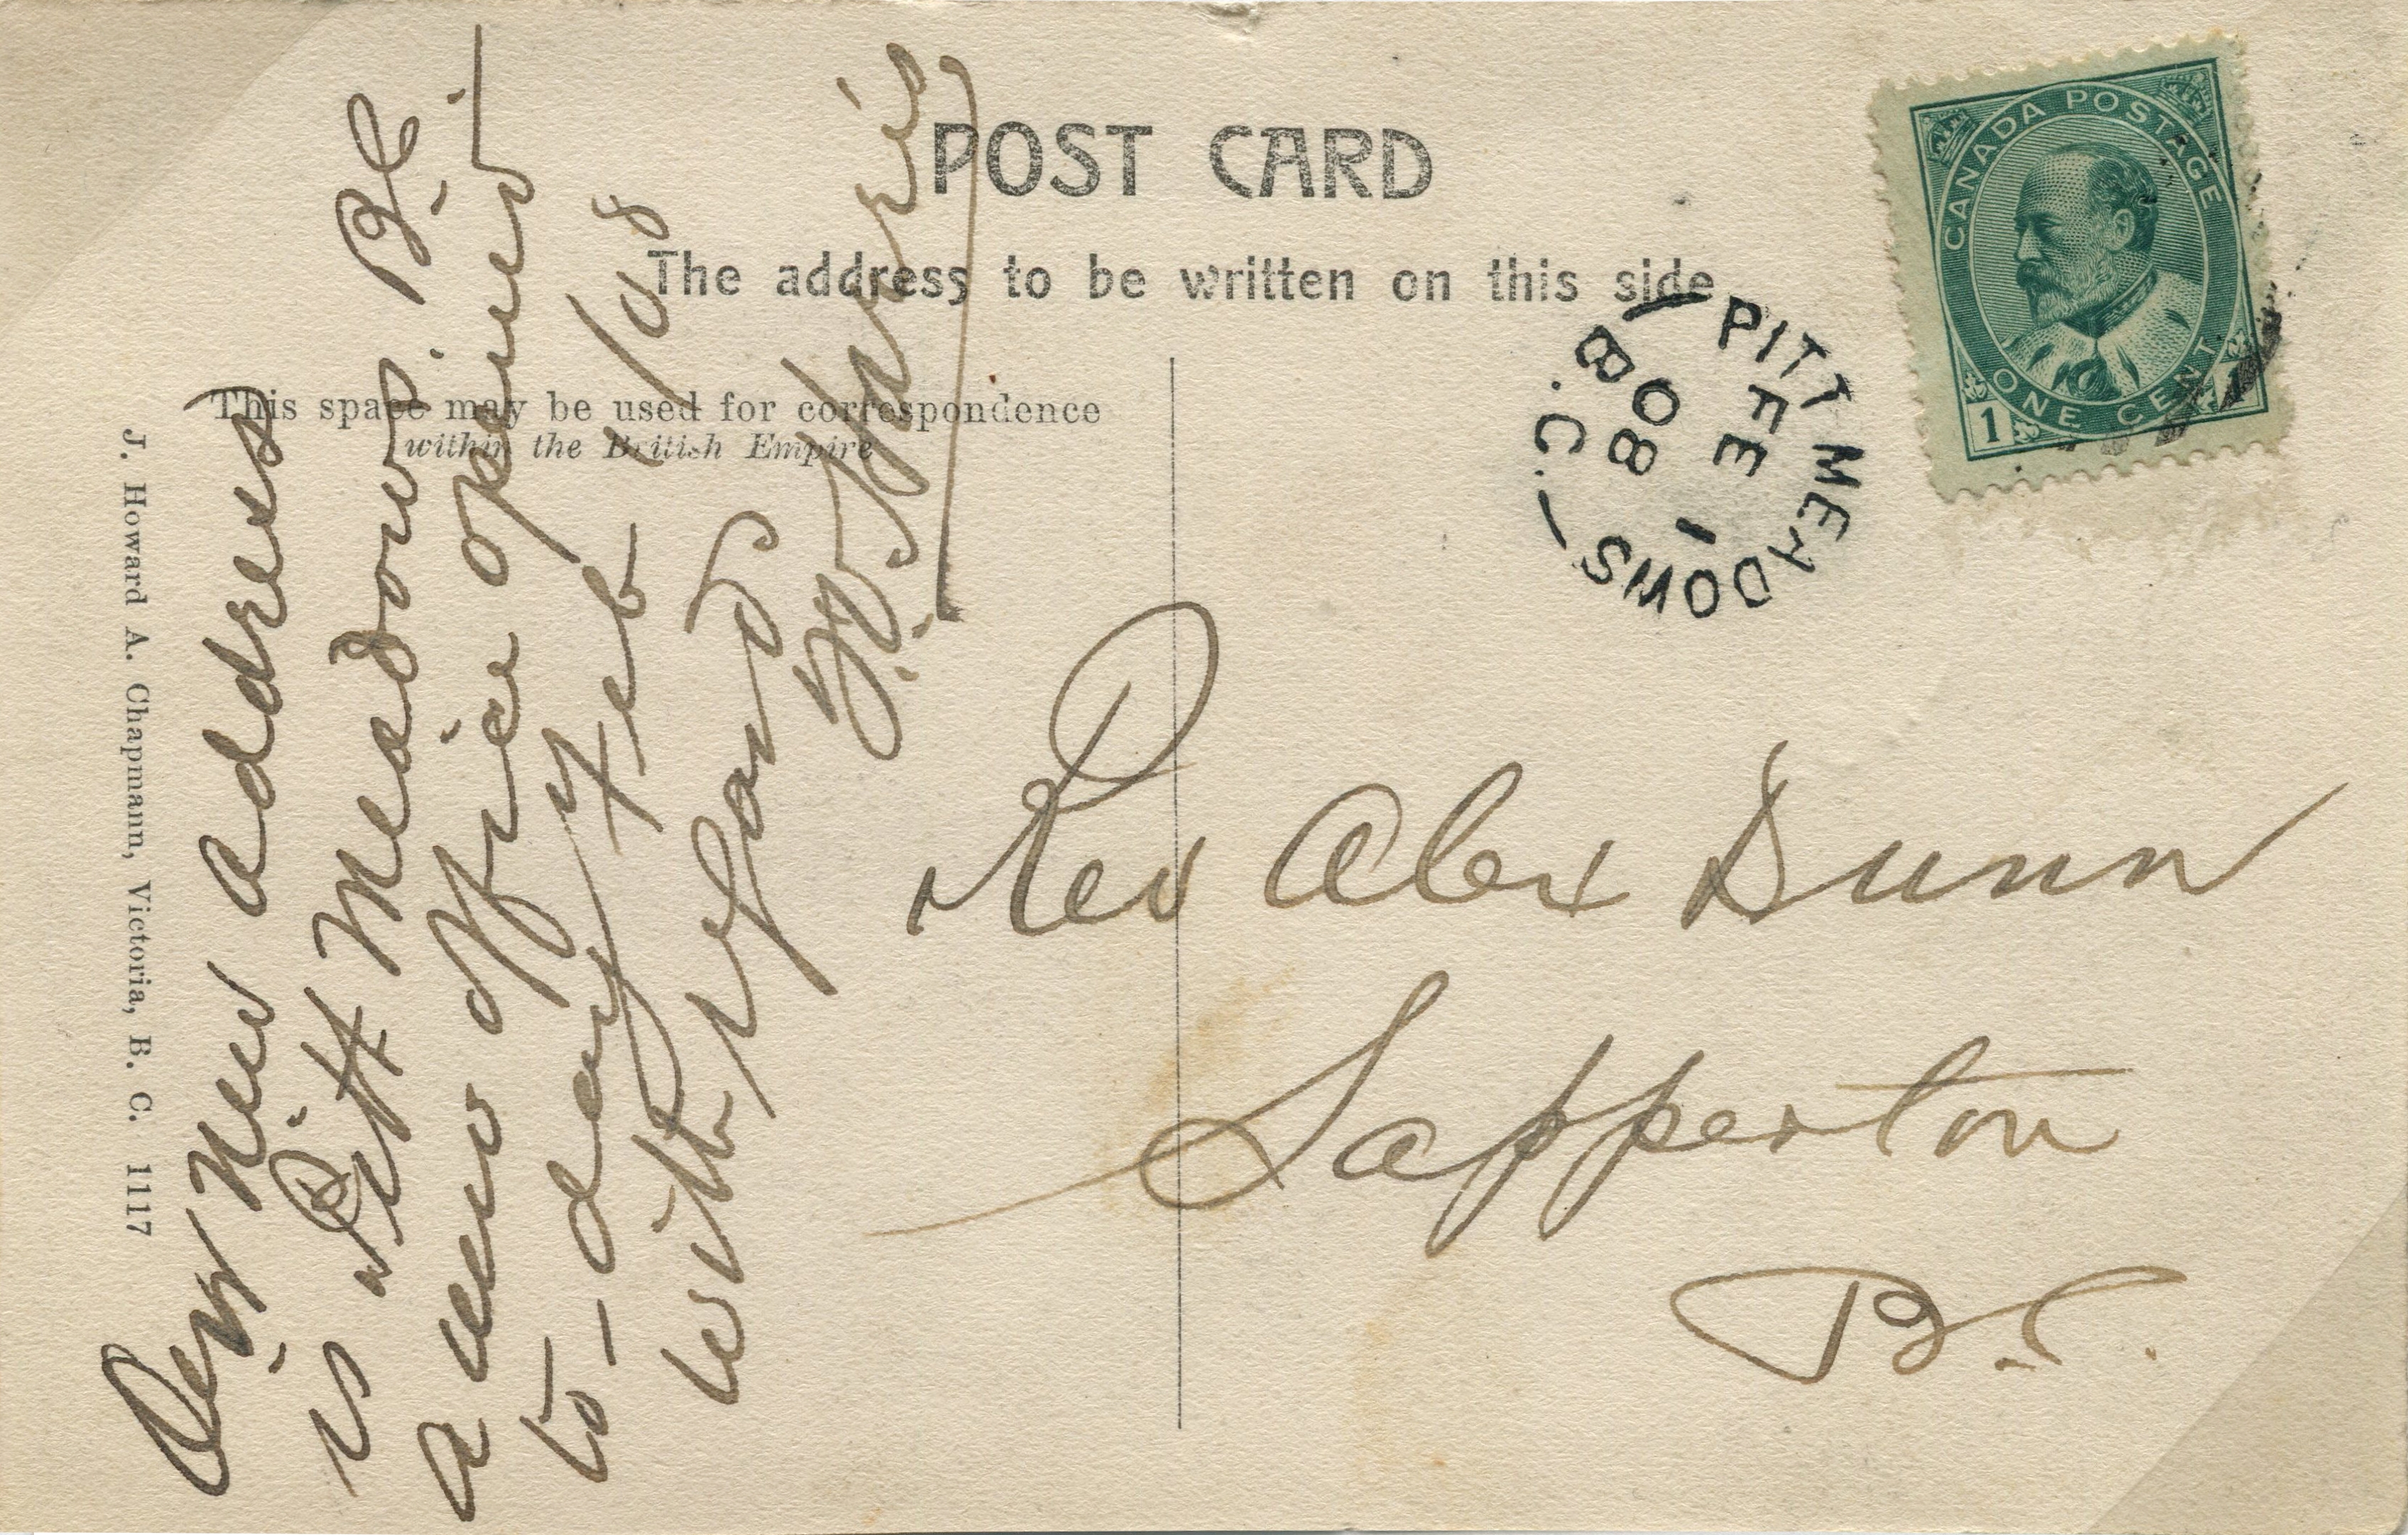 POST CARD
The address to be written on this side
This space may be used for correspondence
within the British Empire
J. Howard A. Chapmann, Victoria, B. C. 1117
CANADA POSTAGE
ONE CENT
1
PITT MEADOWS
B.C.
FE 1
08
New address
is Pitt Meadows. B.C
a new office opened
to-day Feb 1/08
with
Harris
Rev Alex Dunn
Sapperton
B.C.